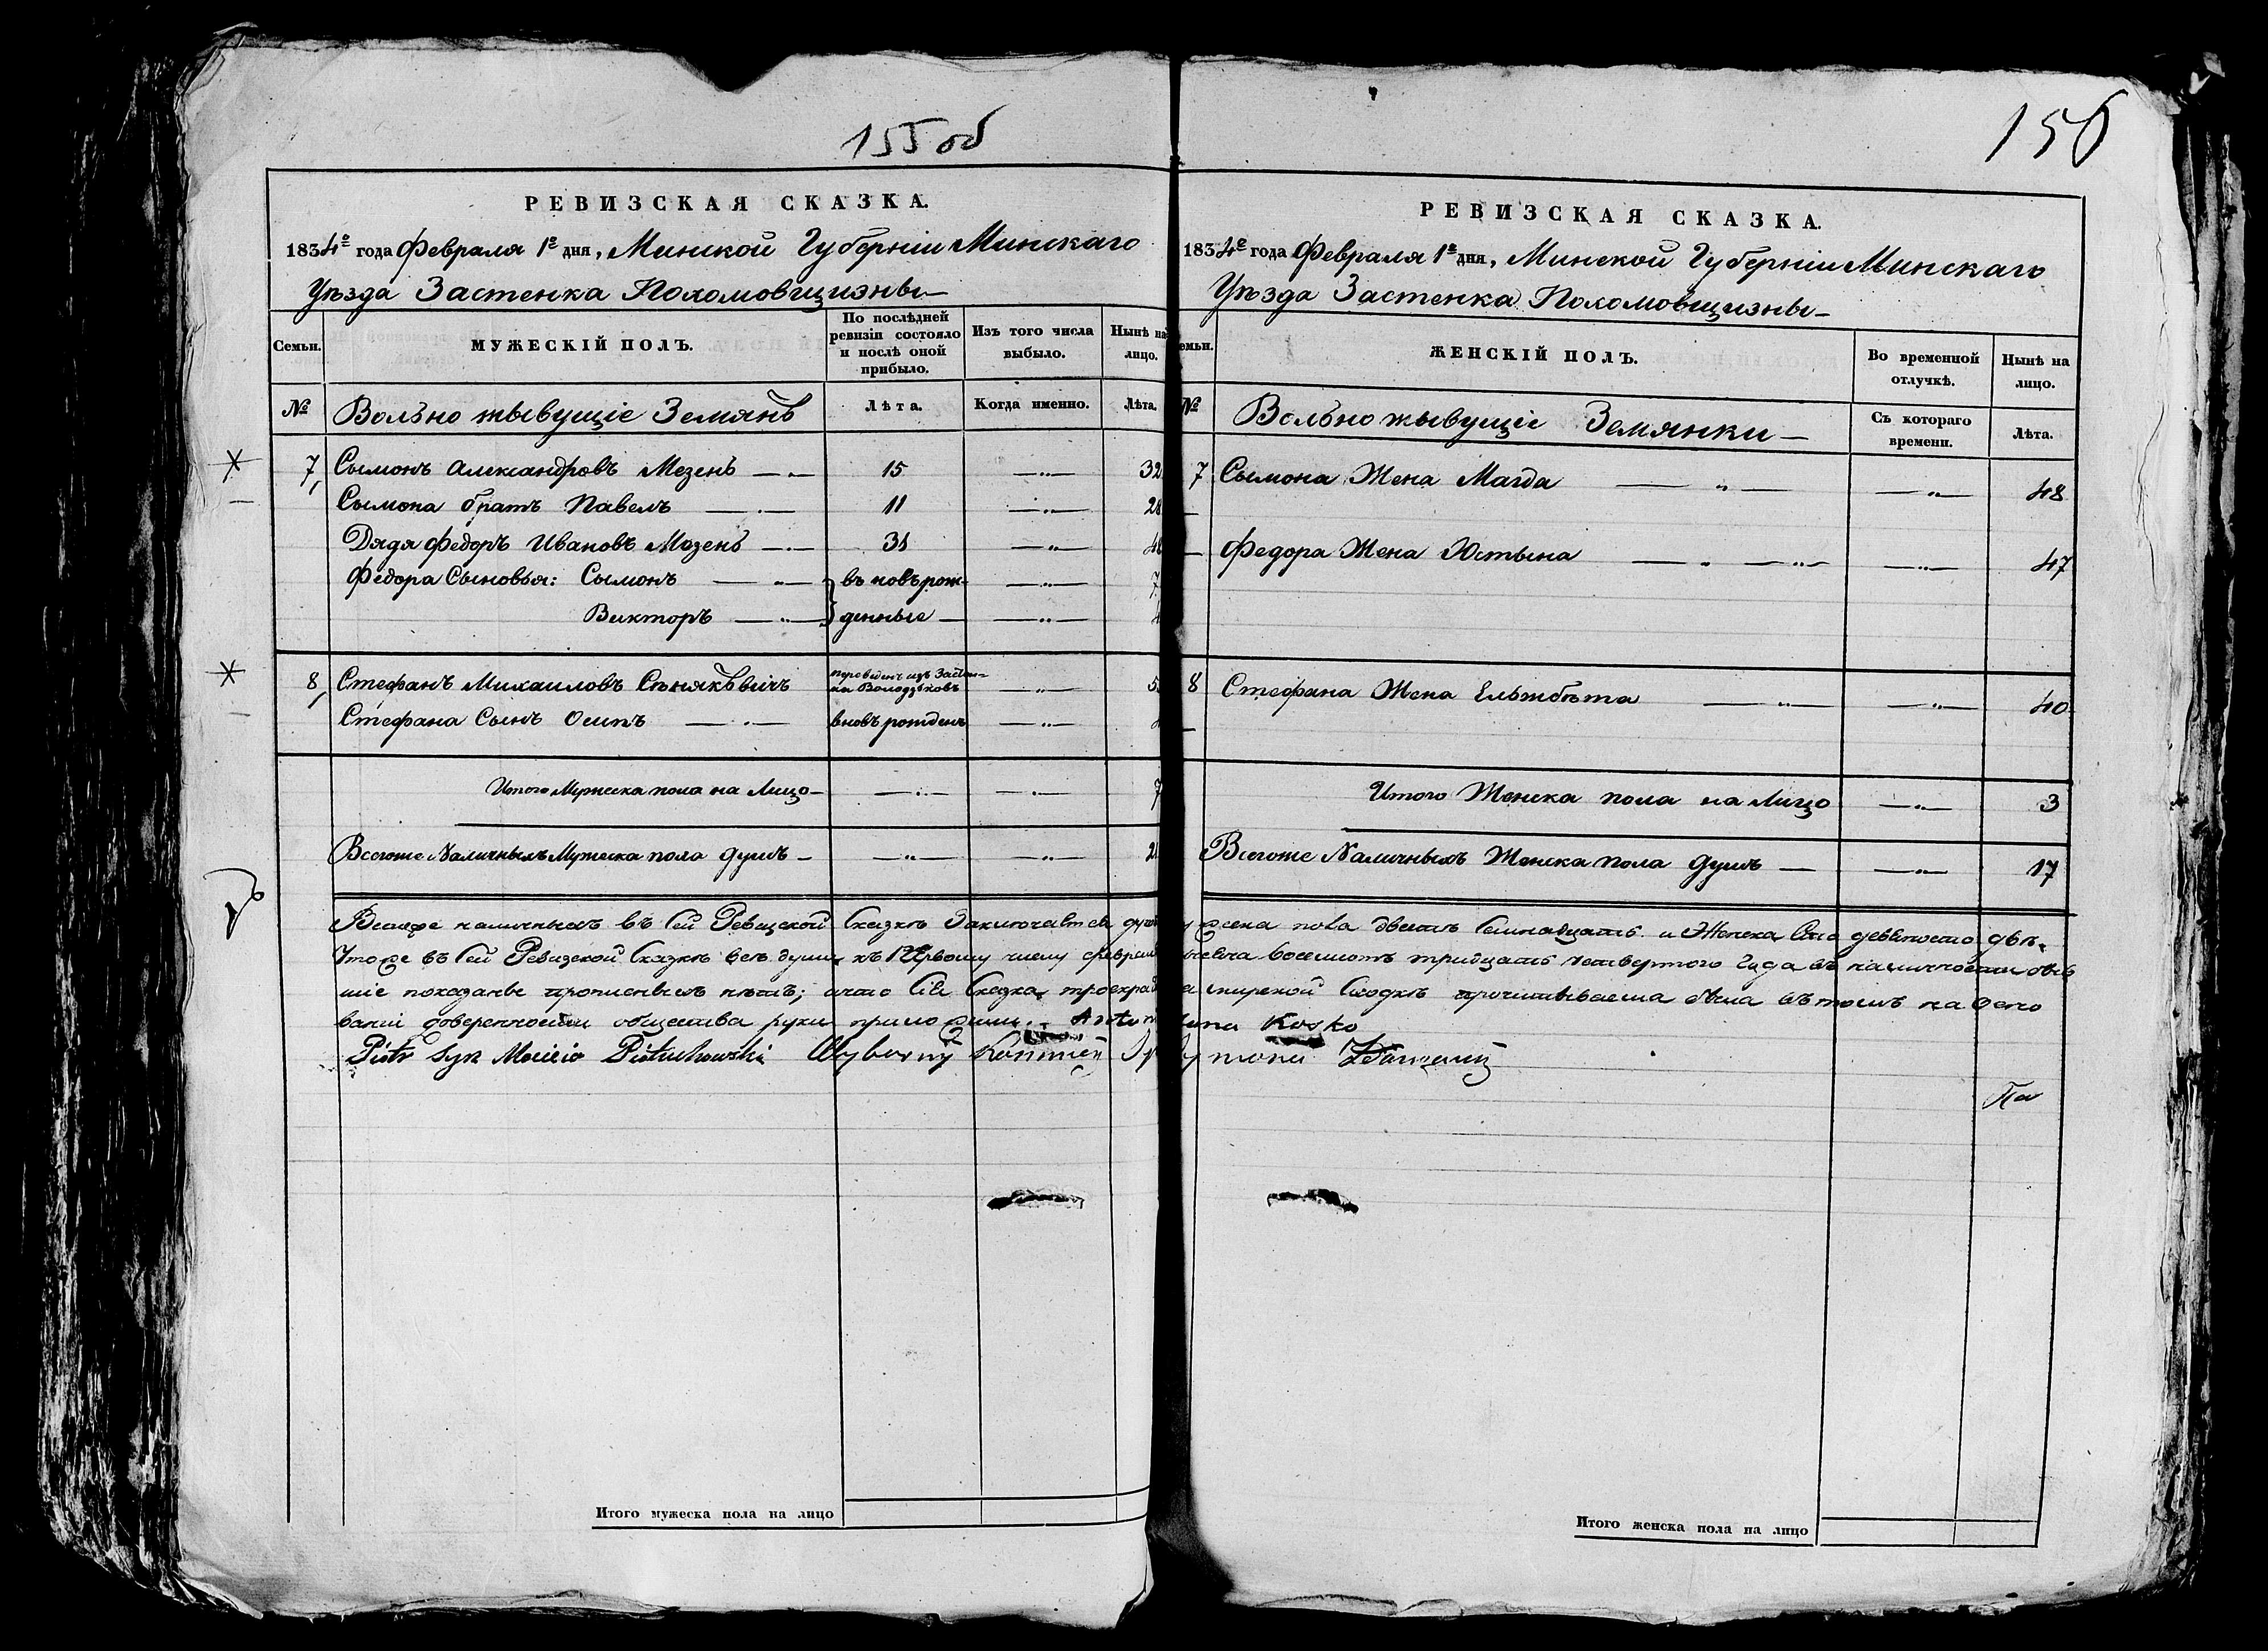 155об
РЕВИЗСКАЯ СКАЗКА.
1834го года Февраля 1го дня, Минской Губерніи Минскаго
Уѣзда Застенка Похомовщизны
Семьи.
МУЖЕСКІЙ ПОЛЪ.
По послѣдней ревизіи состояло и послѣ оной прибыло.
Изъ того числа выбыло.
Нынѣ на лицо.
№ Вольно жывущіе Земянѣ
Лѣта.
Когда именно.
Лѣта.
7 Сымонъ Александровъ Мозень 15 32
Сымона братъ Павелъ 11 28
Дядя Федоръ Ивановъ Мозень 31
Федора Сыновья: Сымонъ въ новь рож- 7
Викторъ денные 4
8 Стефанъ Михаиловъ переведенъ изъ Застен-
ка
Стефана Сынъ Осипъ вновь рожденъ
Итого Мужеска пола на Лицо 7
Всегоже Наличныхъ Мужеска пола душъ
156
РЕВИЗСКАЯ СКАЗКА.
1834го года Февраля 1го дня, Минской Губерніи Минскаго
Уѣзда Застенка Похомовщизны
емьи.
ЖЕНСКІЙ ПОЛЪ.
Во временной отлучкѣ.
Нынѣ на лицо.
№ Вольно жывущіе Земянки
Съ котораго времени.
Лѣта.
7 Сымона Жена Магда 48
Федора Жена Юстына 47
8 Стефана Жена Ельжбѣта 40
Итого Женска пола на Лицо 3
Всегоже Наличныхъ Женска пола душъ 17
Всегоже наличныхъ въ сей Ревизской Сказкѣ Заключается душъ
ужеска пола двести Семнадцать и Женска Сто девяносто двѣ.
Чтоже въ сей Ревизской Сказкѣ всѣ души къ 1 Первому числу феврал
восемсотъ тридцать четвертого Года въ наличности быв
шіе показаны прописныхъ нѣтъ; что сія Сказка
мирской Сходкѣ прочитываема была въ томъ на осно
ваніи доверенности общества руки приложили.
Kosko
Piotr syn Piotuchowski Wyborny
Итого мужеска пола на лицо
Итого женска пола на лицо